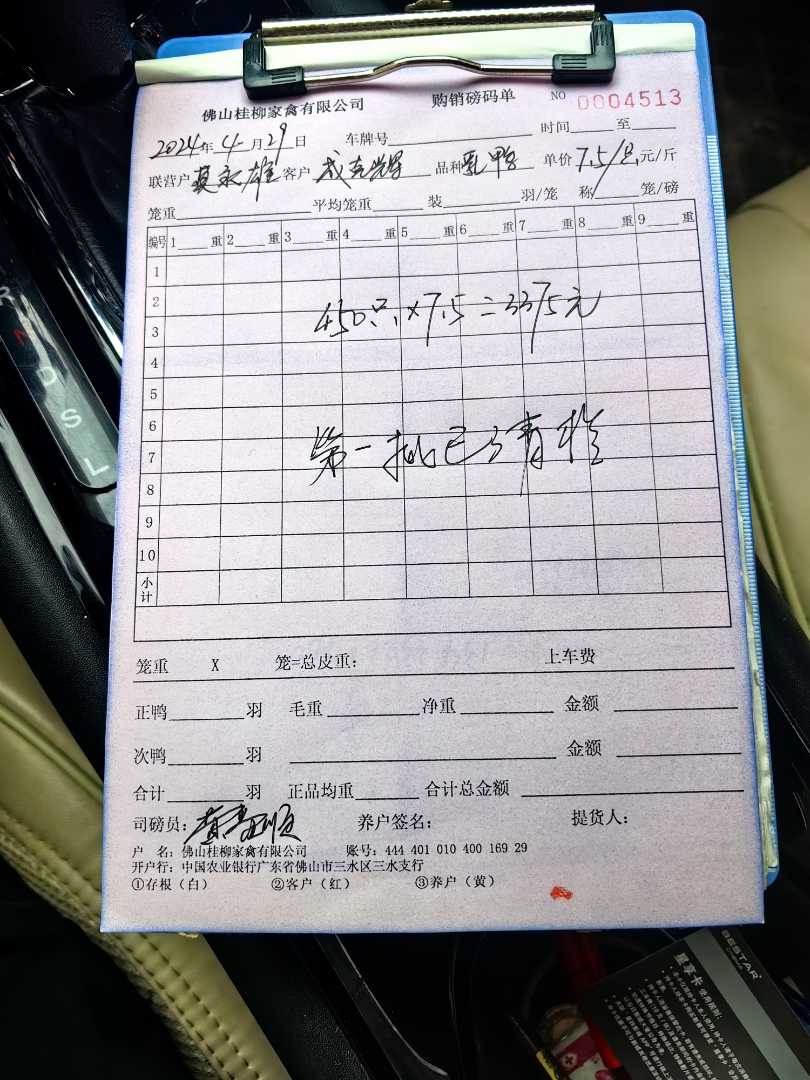 佛山桂柳家禽有限公司 购销磅码单 NO 0004513
2024年4月29日 车牌号 时间 至
联营户 莫永雄 客户 成克辉 品种 乳鸭 单价 7.5/只 元/斤
笼重 平均笼重 装 羽/笼 称 笼/磅
编号 1 重 2 重 3 重 4 重 5 重 6 重 7 重 8 重 9 重
1
2
3
450只×7.5=3375元
4
5
6
7
第一批已
8
9
10
小计
笼重 X 笼=总皮重: 上车费
正鸭 羽 毛重 净重 金额
次鸭 羽 金额
合计 羽 正品均重 合计总金额
司磅员: 养户签名: 提货人:
户 名: 佛山桂柳家禽有限公司 账号: 444 401 010 400 169 29
开户行: 中国农业银行广东省佛山市三水区三水支行
①存根（白） ②客户（红） ③养户（黄）
R
N
D
S
L
BESTAR
星享卡 使用细则: